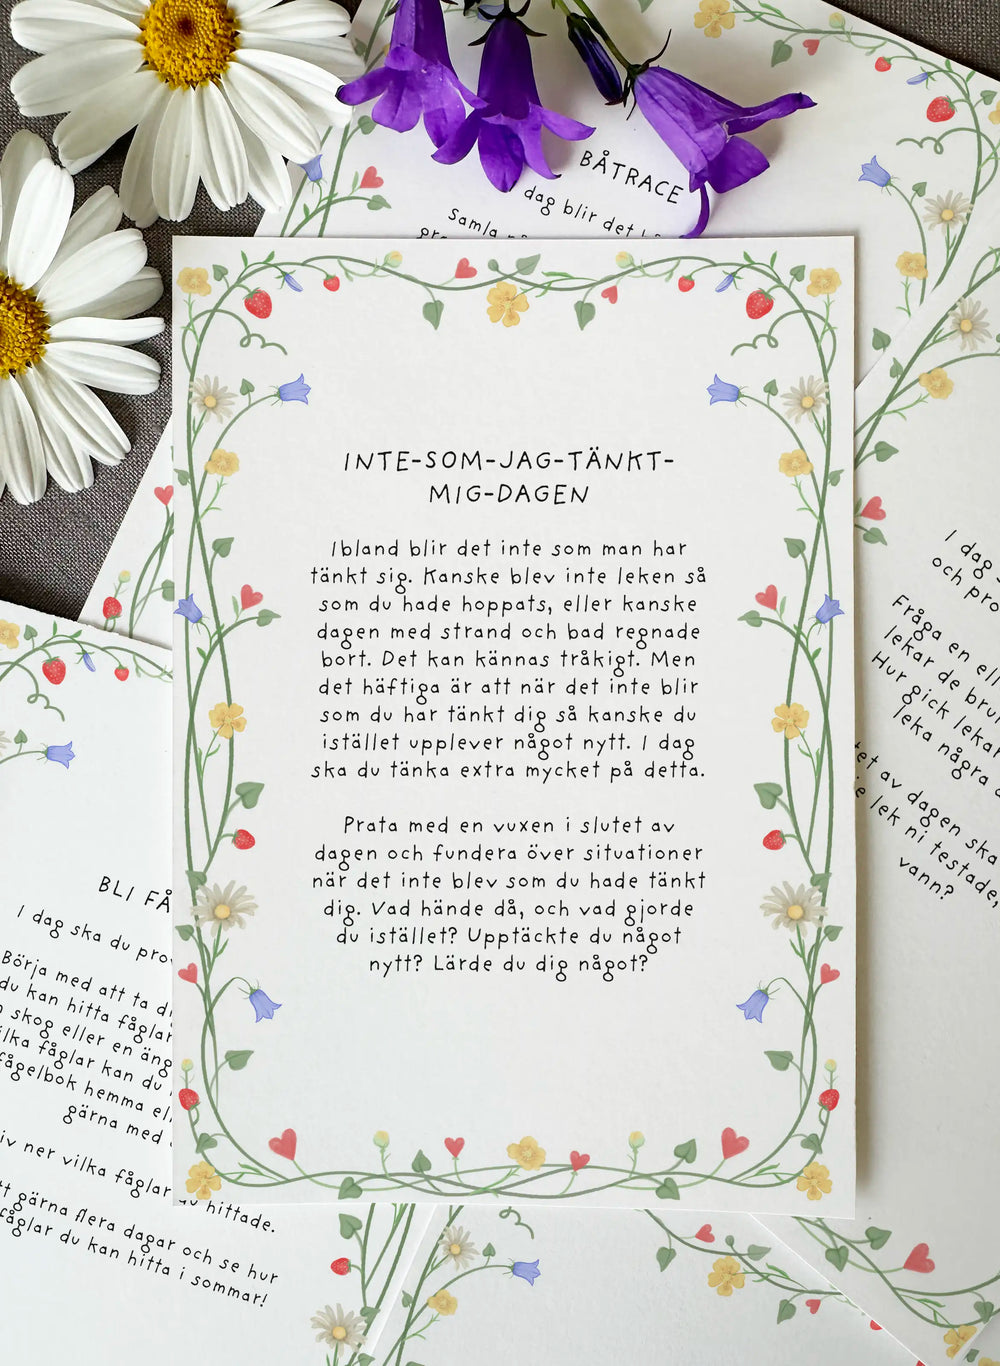 BÅTRACE
dag blir det
Samla
INTE-SOM-JAG-TÄNKT-
MIG-DAGEN
Ibland blir det inte som man har
tänkt sig. Kanske blev inte leken så
som du hade hoppats, eller kanske
dagen med strand och bad regnade
bort. Det kan kännas tråkigt. Men
det häftiga är att när det inte blir
som du har tänkt dig så kanske du
istället upplever något nytt. I dag
ska du tänka extra mycket på detta.
Prata med en vuxen i slutet av
dagen och fundera över situationer
när det inte blev som du hade tänkt
dig. Vad hände då, och vad gjorde
du istället? Upptäckte du något
nytt? Lärde du dig något?
I dag
och
Fråga en
lekar de
Hur gick
leka några
av dagen ska
lek ni testade,
vann?
BLI
I dag ska du
Börja med att ta
du kan hitta
skog eller en
fåglar kan du
fågelbok hemma
gärna med
ner vilka fåglar du hittade.
gärna flera dagar och se hur
fåglar du kan hitta i sommar!